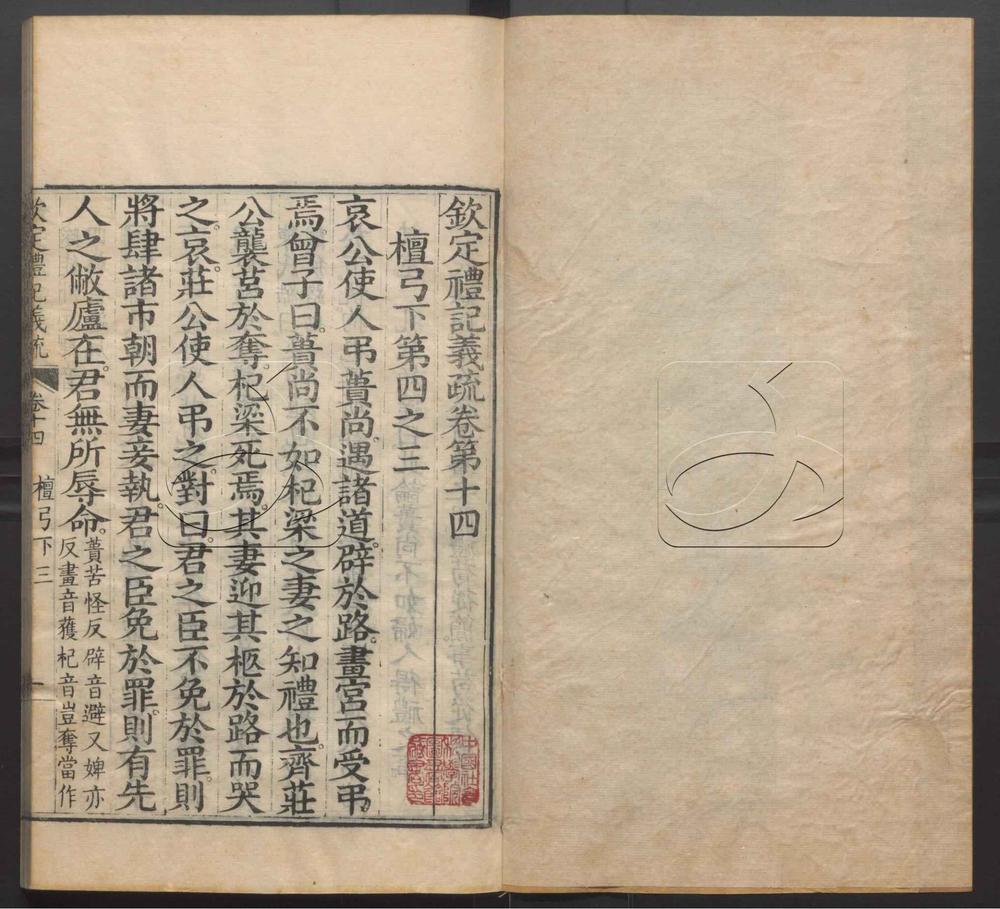 欽定禮記義疏卷第十四
檀弓下第四之三
哀公使人弔蕢尚遇諸道辟於路畫宮而受弔
焉曾子曰蕢尚不如杞梁之妻之知禮也齊莊
公襲莒於奪杞梁死焉其妻迎其柩於路而哭
之哀莊公使人弔之對曰君之臣不免於罪則
將肆諸市朝而妻妾執君之臣免於罪則有先
人之敝廬在君無所辱命
蕢苦怪反辟音避又婢亦
反畫音獲杞音豈奪當作
欽定禮記義疏
卷十四 檀弓下三 一